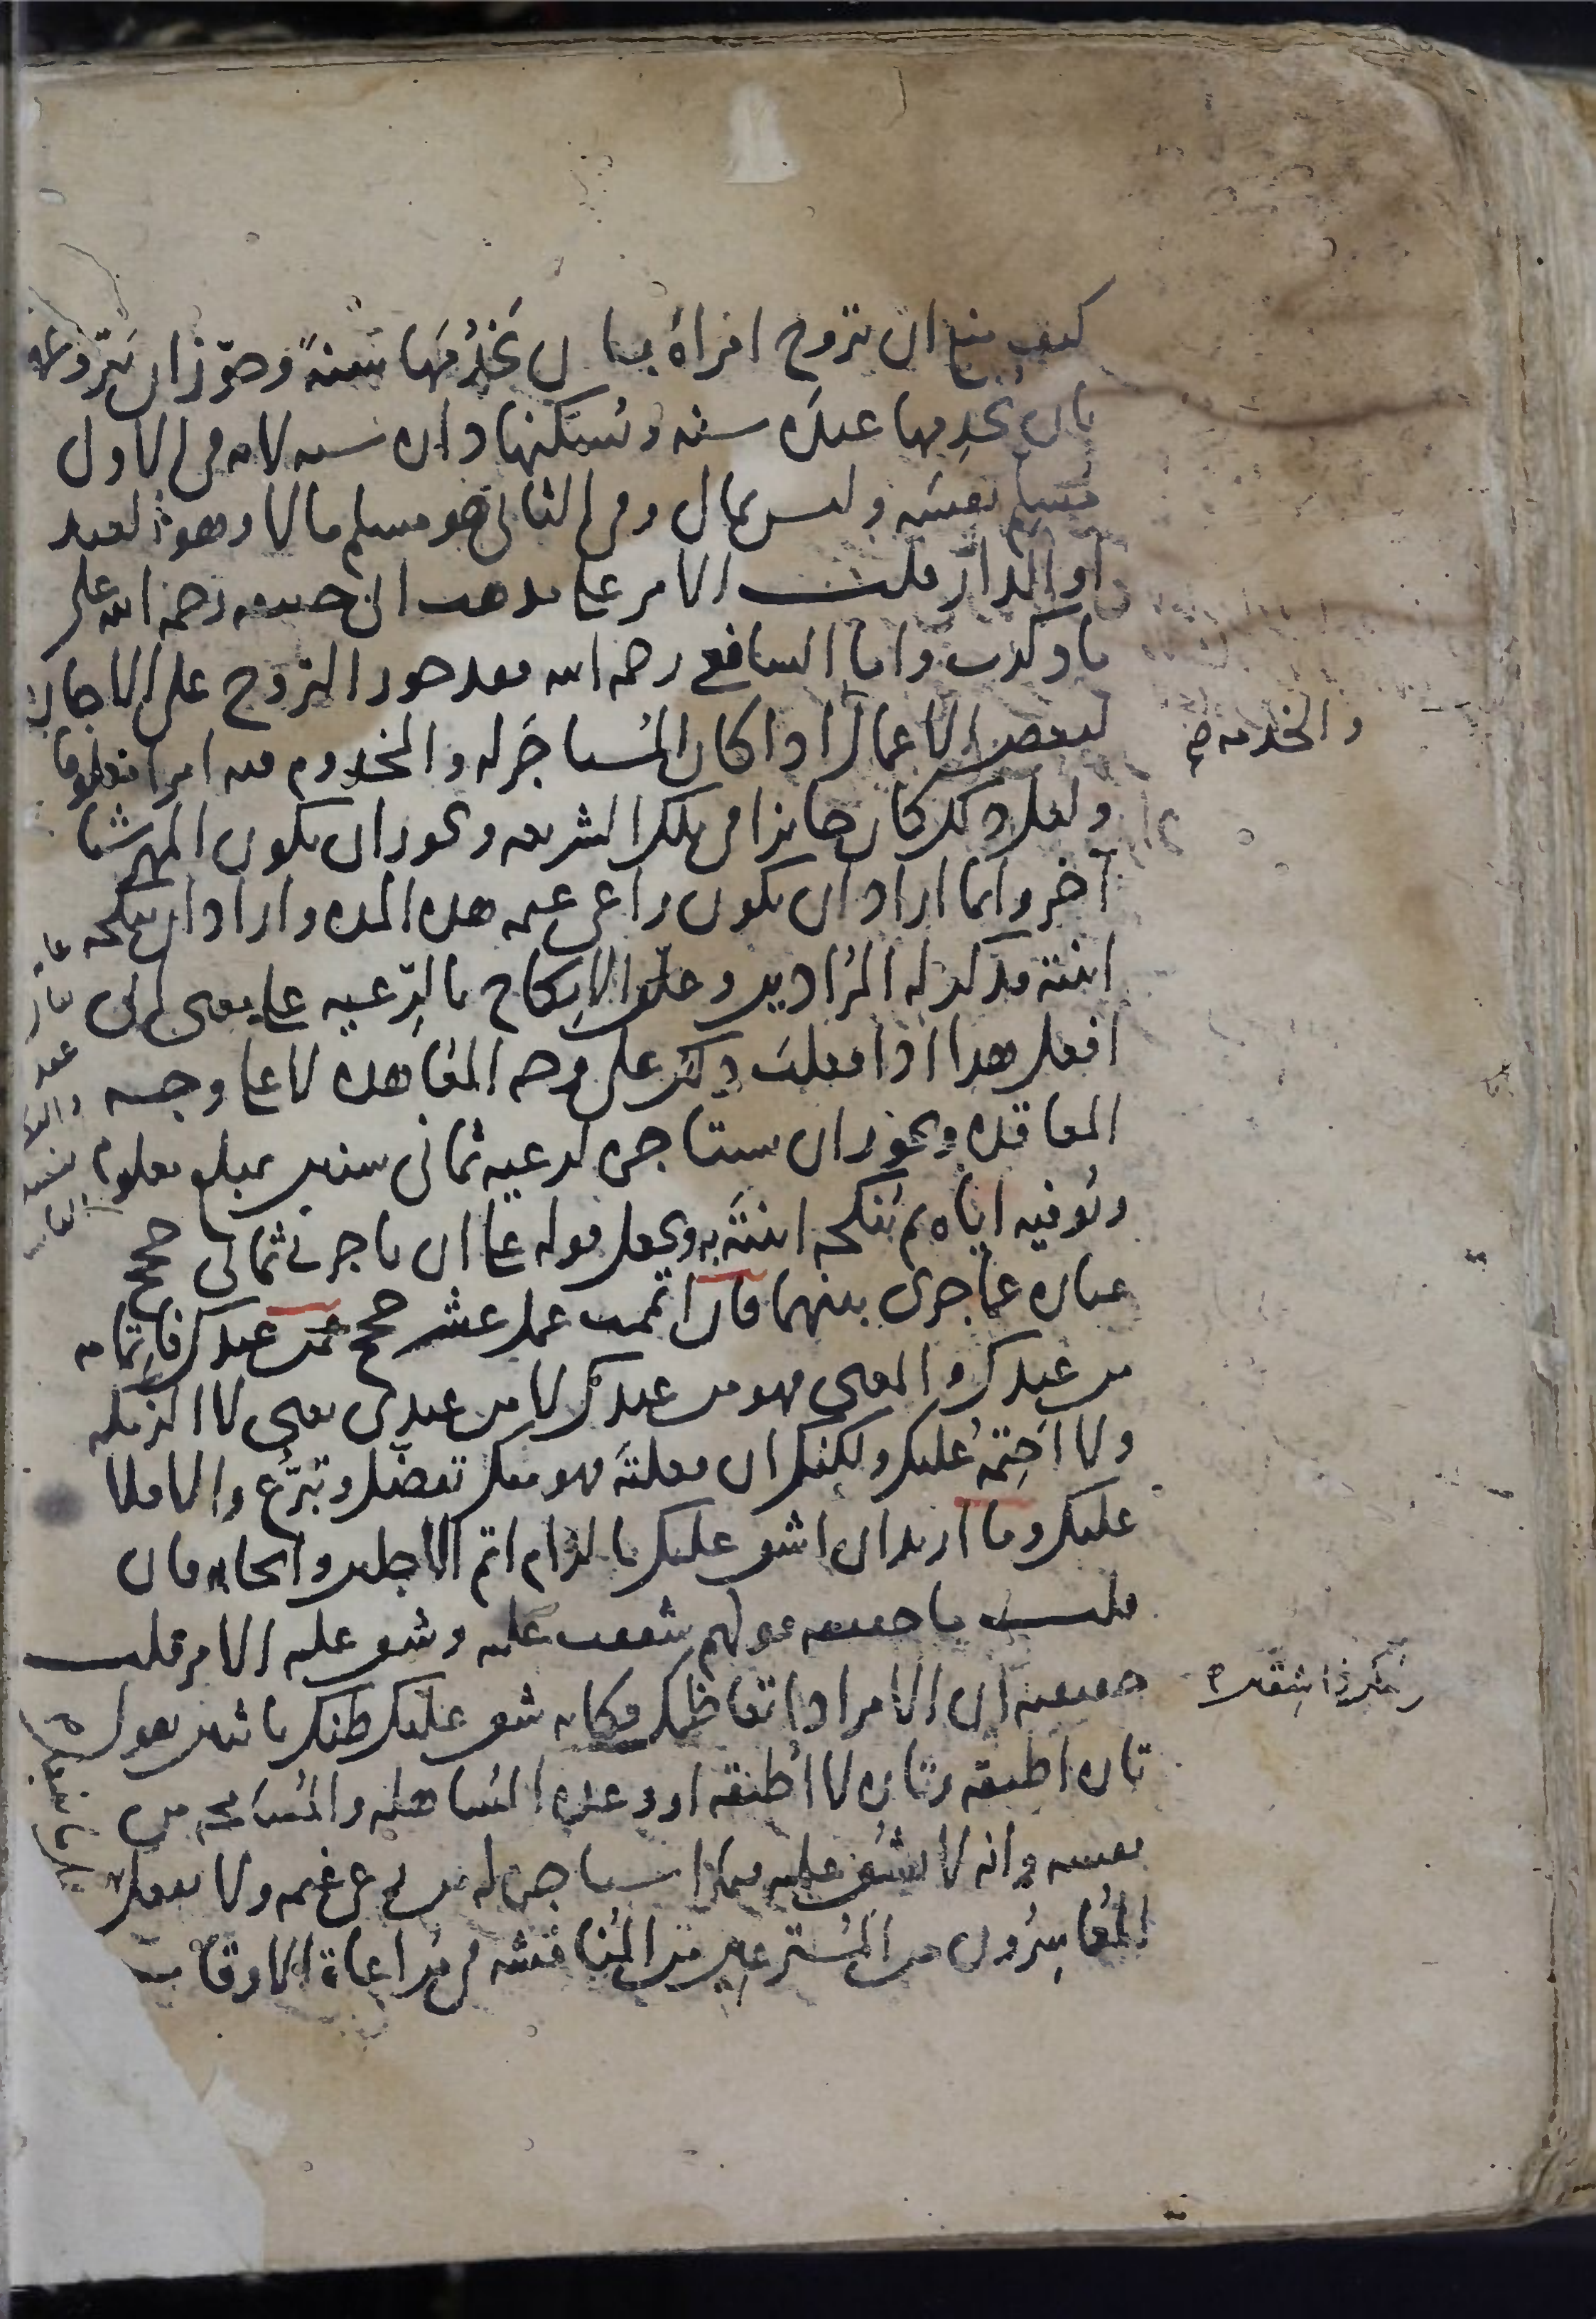 كيف منع ان يتزوج امراة بان يخدُمَها سنةً وجوّز ان يتزوجها
بان يخدِمها عبدَه سنه ويُسكنها داره سنه لانه في الاول
مسلِم نفسَه وليس بمال وفي الثاني هو مسلم مالا وهو العبد
او الدار قلت الامر على مذهب ابي حنيفه رحمه الله على
ما ذكرت واما الشافعي رحمه الله فقد جوز التزوج على الاجاره
لبعض الاعمال اذا كان المُستاجَر له والمخدوم فيه امرا معلوما
والخدمه صح
ولعل ذلك كان جائزا في تلك الشريعه ويجوز ان يكون المهر شيا
آخر وانما اراد ان يكون راعي غنمه هذه المده واراد ان ينكحه
ابنته فذكر له المُرادين وعلّق الانكاح بالرِّعيه على معنى اني
افعل هذا اذا فعلتَ ذلك على وجه المعاهده لا على وجه
المعاقده ويجوز ان يستاجره لرعيه ثماني سنين بمبلغ معلوم
ويُوفيه اياه ثم يُنكحه ابنتَه به ويجعل قوله على ان تاجرني ثماني حجج
عباره عما جرى بينهما فان اتممت عمل عشر حجج فمن عندك فاتمامه
من عندك والمعنى فهو من عندك لا من عندي يعني لا الزمكه
ولا احتِمُه عليك ولكنك ان فعلتَه فهو منك تفضّل وتبرُّع والا فلا
عليك وما اريد ان اشق عليك بالزام اتم الاجلين وايجابه فان
قلت ما حقيقه قولهم شققت عليه وشق عليه الامر قلت
حقيقته ان الامر اذا تعاظمك فكانه شق عليك ظنك باثنين تقول
تاره اطيقه وتاره لا اُطيقه او وعده المُساهله والمُسامحه من
نفسه وانه لا يشُق عليه فيما استاجره له من رعي غنمه ولا يفعل
المُعاسِرُون من المُسترعين من المُناقشه في مُراعاة الاوقات